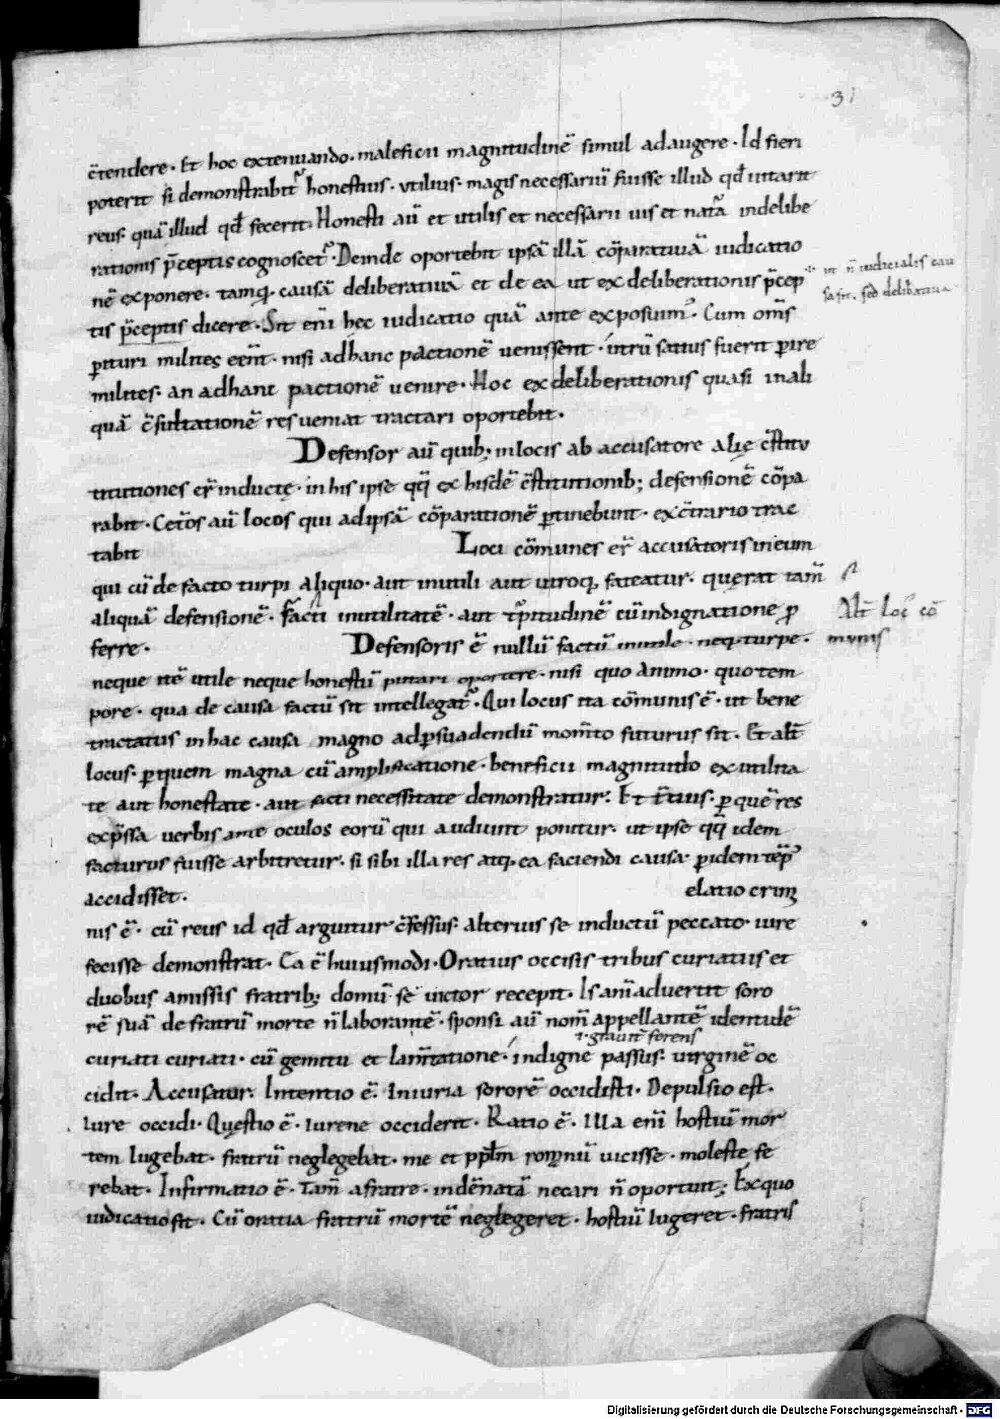 31
c̄tendere · Et hoc extenuando · maleficii magnitudinē simul adaugere · Id fieri
poterit si demonstrabit᷑ honestius · vtilius · magis necessariū fuisse illud qđ uitarit
reus · quā illud qđ fecerit · Honesti aū et utilis et necessarii uis et nat᷑a indelibe
rationis p̄ceptis cognoscet᷑ · Deinde oportebit ipsā illā cōparatiuā iudicatio
nē exponere · tamq; causā deliberatiuā et de ea ut ex deliberationis p̄cep
ut n̄ iudicialis cau
sa sit, sed deliberatiua
tis p̄ceptis dicere · Sit enī hec iudicatio quā ante exposuim᷒ · Cum om̄s
ꝑituri milites eēnt · nisi adhanc pactionē uenissent · utrū satius fuerit ꝑire
milites · an adhanc pactionē uenire · Hoc ex deliberationis quasi inali
quā c̄sultationē res ueniat tractari oportebit ·
Defensor aū quib; inlocis ab accusatore alię c̄stitu
titutiones eř inductę · in his ipse qq̄ ex hisdē c̄stitutionib; defensionē cōpa
rabit · Cet᷑os aū locos qui adipsā cōparationē ꝑtinebunt · ex c̄trario trac
tabit
Loci cōmunes eř accusatoris ineum
qui cū de facto turpi aliquo · aut inutili aut utroq, fateatur · quęrat tam̄
aliquā defensionē · facti inutilitatē · aut t᷑pitudinē cū indignatione ꝓ
Alt̄ loc᷒ cō
munis
ferre ·
Defensoris ē nullū factū inutile · neq · turpe ·
neque itē utile neque honestū putari oportere · nisi quo animo · quo tem
pore · qua de causa factū sit intellegat᷑ · Qui locus ita cōmunis ē · ut bene
tractatus in hac causa magno adꝑsuadendū mom̄to futurus sit · Et alt̄
locus · ꝑ quem magna cū amplificatione · beneficii magnitudo ex utilita
te aut honestate · aut facti necessitate demonstratur · Et t̄tius · ꝑ quē res
exp̄ssa uerbis ante oculos eorū qui audiunt ponitur · ut ipse qq̄ idem
facturus fuisse arbitretur · si sibi illa res atq, ea faciendi causa ꝑ idem tēp᷒
accidisset ·
elatio crimi
nis ē · cū reus id qđ arguitur c̄fessus · alterius se inductū peccato · iure
fecisse demonstrat · Ea ē huiusmodi · Oratius occisis tribus curiatiis et
duobus amissis fratrib; domū se uictor recepit · Is am̄aduertit soro
rē suā de fratrū morte n̄ laborantē · sponsi aū nom̄ appellantē identidē
.i. grauit᷑ ferens
curiati curiati · cū gemitu et lam̄tatione · indigne passus · uirginē oc
cidit · Accusatur · Intentio ē · Iniuria sororē occidisti · Depulsio est ·
Iure occidi · Quęstio ē · iurene occiderit · Ratio ē · Illa enī hostiū mor
tem lugebat · fratrū neglegebat · me et pp̄lm romanū uicisse · moleste fe
rebat · Infirmatio ē · Tam̄ a fratre · indēnatā necari n̄ oportuit ; Ex quo
iudicatio fit · Cū oratia fratrū mortē neglegeret · hostiū lugeret · fratris
Digitalisierung gefördert durch die Deutsche Forschungsgemeinschaft - DFG